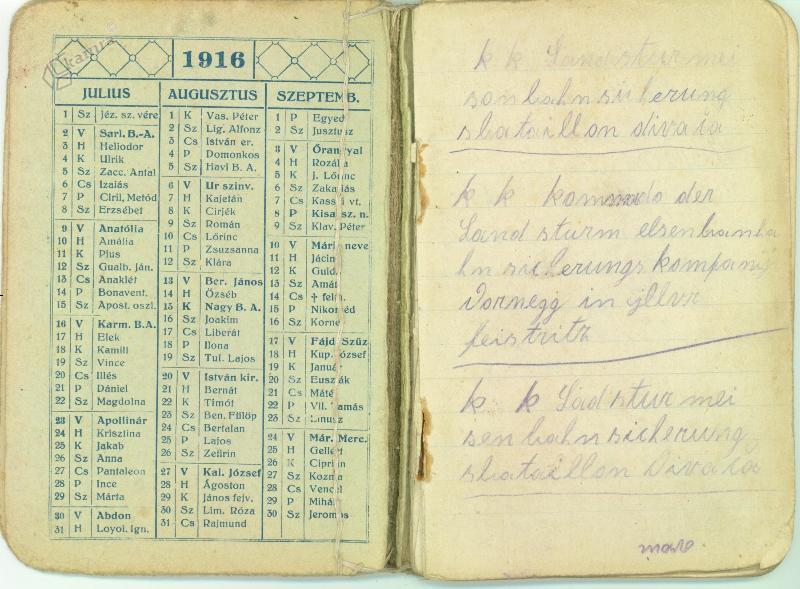 1916
JULIUS
1 Sz Jéz. sz. vére
2 V Sarl. B.-A.
3 H Heliodor
4 K Ulrik
5 Sz Zacc. Antal
6 Cs Izaiás
7 P Ciril, Metód
8 Sz Erzsébet
9 V Anatólia
10 H Amália
11 K Pius
12 Sz Gualb. Ján.
13 Cs Anaklét
14 P Bonavent.
15 Sz Apost. oszl.
16 V Karm. B.A.
17 H Elek
18 K Kamill
19 Sz Vince
20 Cs Illés
21 P Dániel
22 Sz Magdolna
23 V Apollinár
24 H Krisztina
25 K Jakab
26 Sz Anna
27 Cs Pantaleon
28 P Ince
29 Sz Márta
30 V Abdon
31 H Loyol. Ign.
AUGUSZTUS
1 K Vas. Péter
2 Sz Lig. Alfonz
3 Cs István er.
4 P Domonkos
5 Sz Havi B. A.
6 V Ur szinv.
7 H Kajetán
8 K Cirjék
9 Sz Román
10 Cs Lőrinc
11 P Zsuzsanna
12 Sz Klára
13 V Ber. János
14 H Özséb
15 K Nagy B. A.
16 Sz Joakim
17 Cs Liberát
18 P Ilona
19 Sz Tul. Lajos
20 V István kir.
21 H Bernát
22 K Timót
23 Sz Ben. Fülöp
24 Cs Bertalan
25 P Lajos
26 Sz Zefirin
27 V Kal. József
28 H Ágoston
29 K János fejv.
30 Sz Lim. Róza
31 Cs Rajmund
SZEPTEMB.
1 P Egyed
2 Sz Jusztus
3 V Őrangyal
4 H Rozália
5 K J. Lőrinc
6 Sz Zakariás
7 Cs Kassai vt.
8 P Kisasz. n.
9 Sz Klav. Péter
10 V Mária neve
11 H Jácint
12 K Guidó
13 Sz Amát
14 Cs † felm.
15 P Nikoméd
16 Sz Kornél
17 V Fájd. Szűz
18 H Kup. József
19 K Január
20 Sz Euszták
21 Cs Máté
22 P Vil. Tamás
23 Sz Linusz
24 V Már. Merc.
25 H Gellért
26 K Ciprián
27 Sz Kozma
28 Cs Vencel
29 P Mihály
30 Sz Jeromos
k k Landsturmei
senbahnsicherung
sbataillon divaia
k k kommado der
Landsturm eisenbanba
hnsicherungs kompani
Dornegg in
feistritz
k k Ladsturmei
senbahnsicherung
sbataillon Divaia